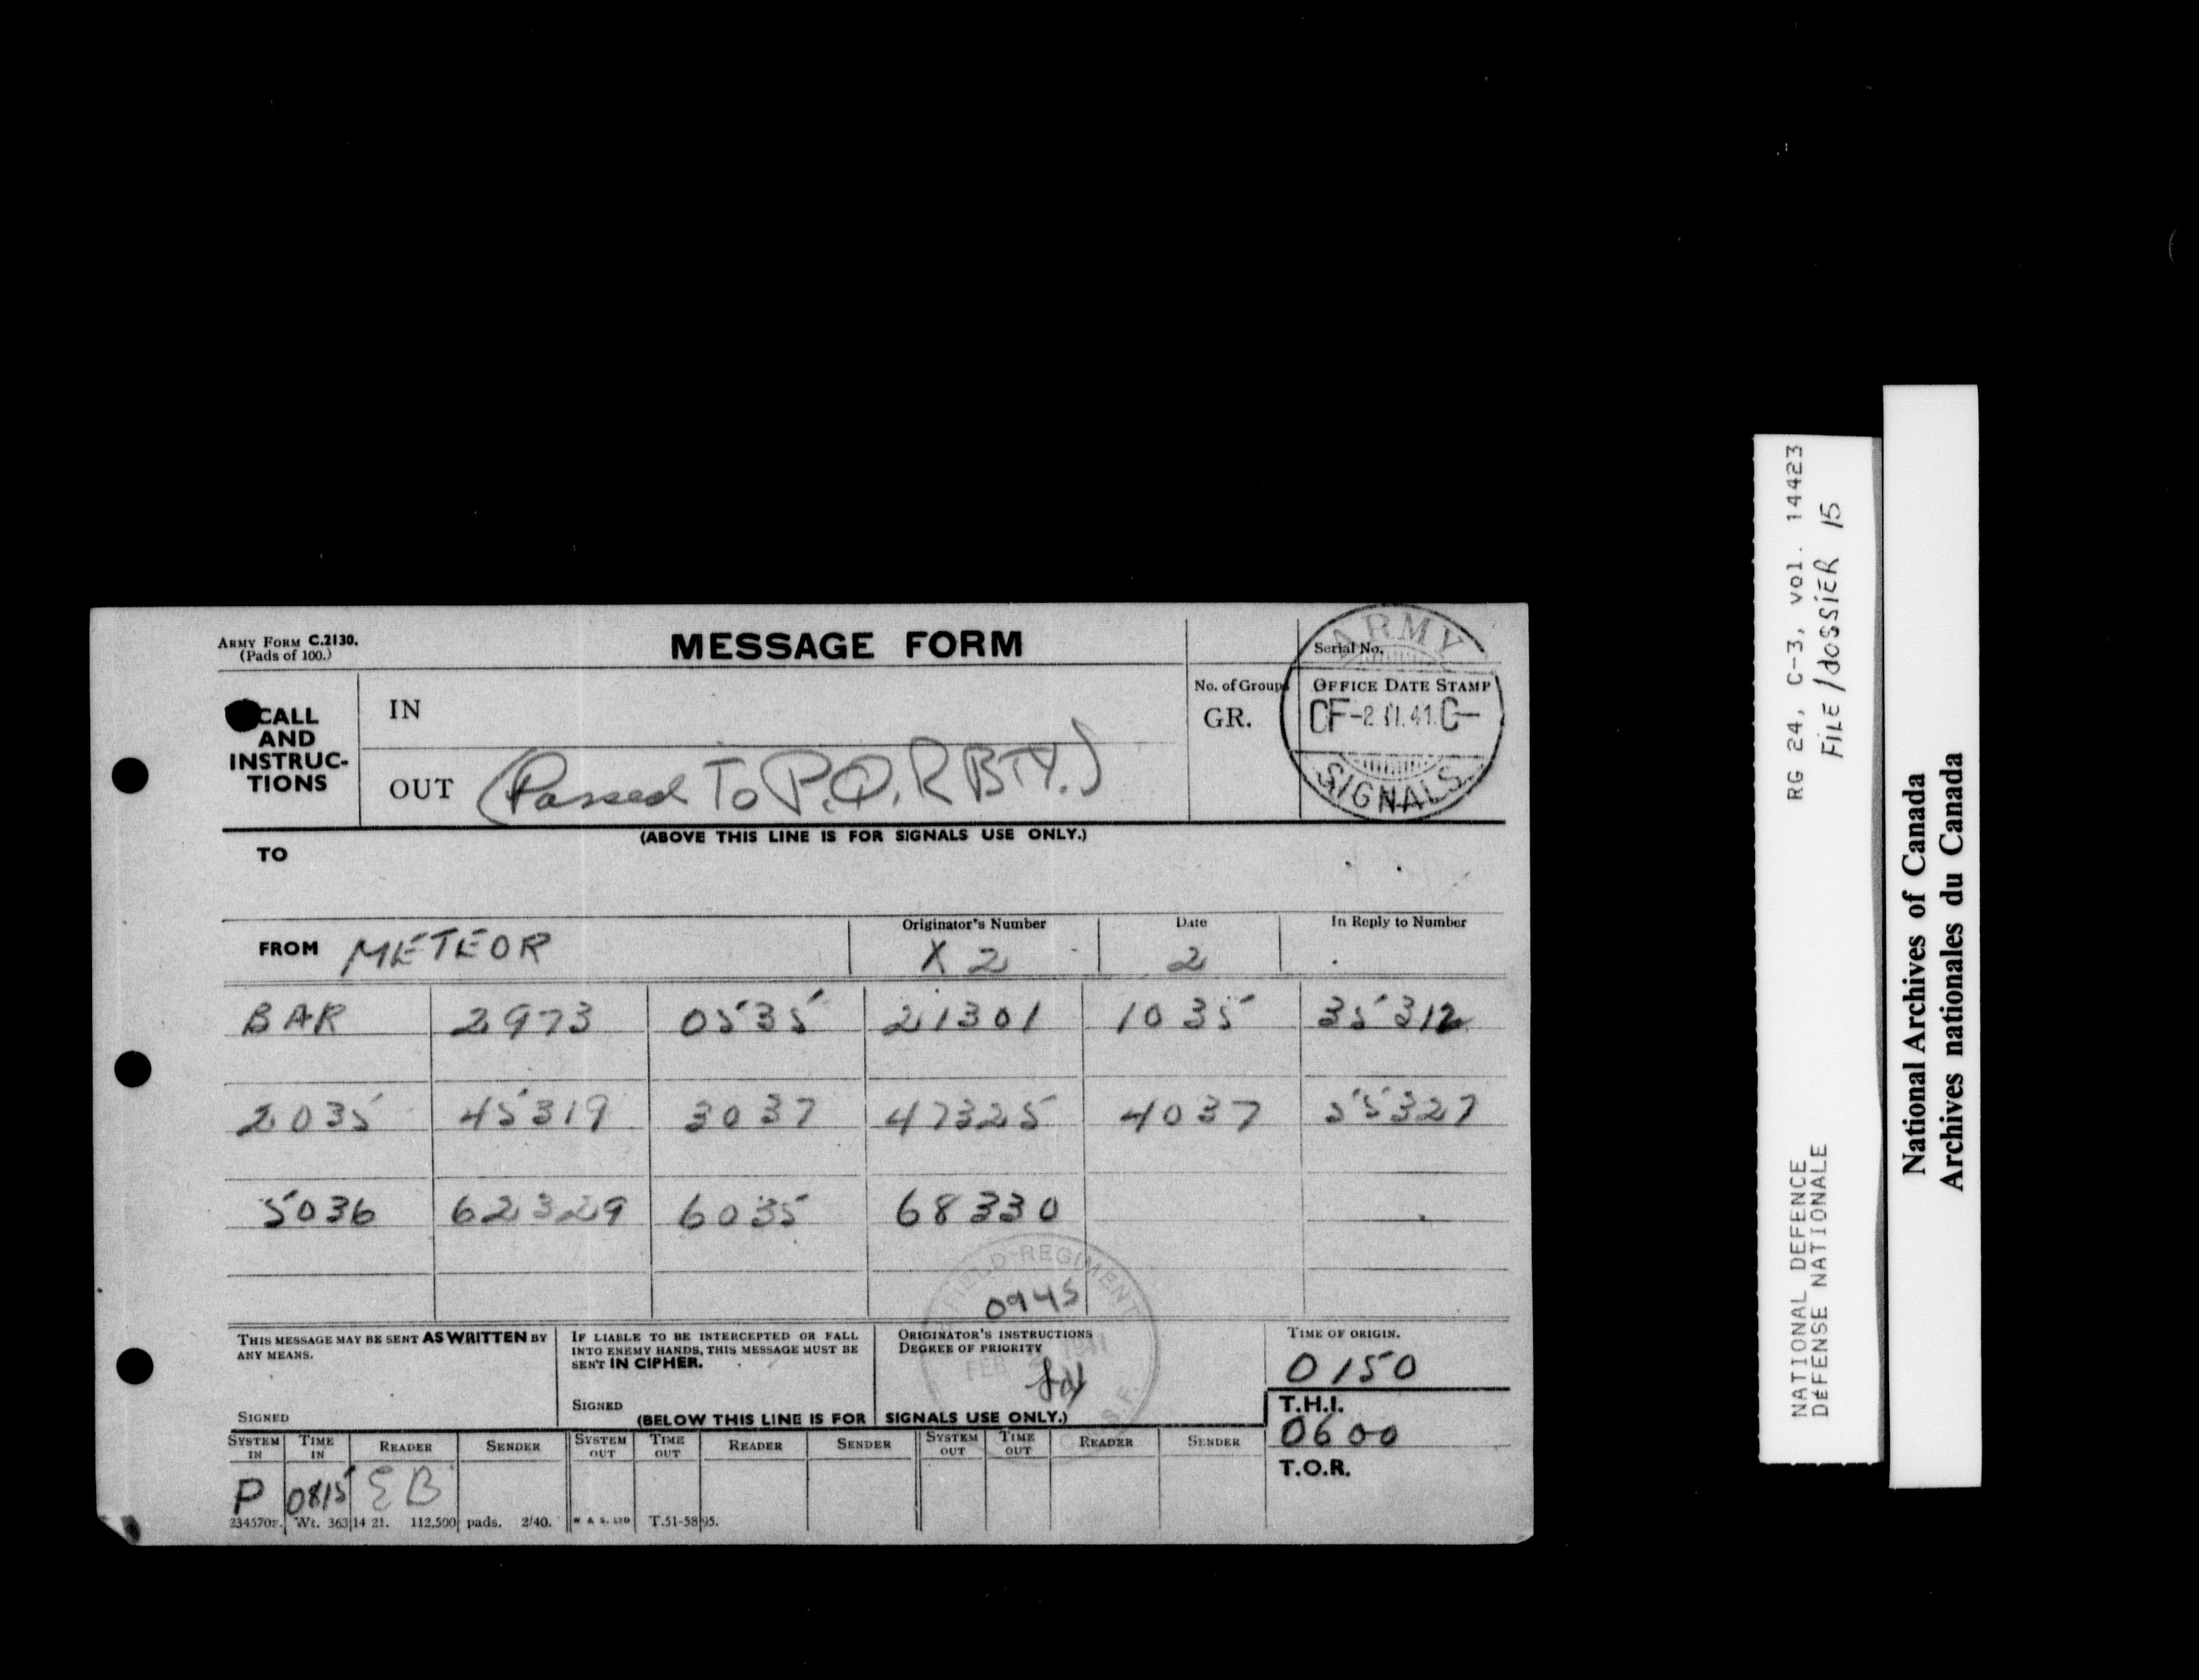 ARMY FORM C.2130.
(Pads of 100.)
MESSAGE FORM
Serial No.
ARMY
CALL
AND
INSTRUC-
TIONS
IN
No. of Groups
GR.
OFFICE DATE STAMP
CF-2.II.41.C-
SIGNALS
OUT (Passed To P.Q.R BTY.)
(ABOVE THIS LINE IS FOR SIGNALS USE ONLY.)
TO
FROM METEOR
Originator's Number
X 2
Date
2
In Reply to Number
BAR 2973 0535 21301 1035 35312
2035 45319 3037 47325 4037 55327
5036 62329 6035 68330
FIELD REGIMENT
0945
FEB 1941
THIS MESSAGE MAY BE SENT AS WRITTEN BY
ANY MEANS.
SIGNED
IF LIABLE TO BE INTERCEPTED OR FALL
INTO ENEMY HANDS, THIS MESSAGE MUST BE
SENT IN CIPHER.
SIGNED
ORIGINATOR'S INSTRUCTIONS
DEGREE OF PRIORITY
TIME OF ORIGIN.
0150
T.H.I.
0600
T.O.R.
(BELOW THIS LINE IS FOR SIGNALS USE ONLY.)
SYSTEM IN TIME IN READER SENDER SYSTEM OUT TIME OUT READER SENDER SYSTEM OUT TIME OUT READER SENDER
P 0815 EB
234570F. Wt. 36314 21. 112,500 pads. 2/40. W & S. LTD T.51-5895.
RG 24, C-3, vol. 14423
FILE/dOSSiER 15
NATIONAL DEFENCE
DÉFENSE NATIONALE
National Archives of Canada
Archives nationales du Canada